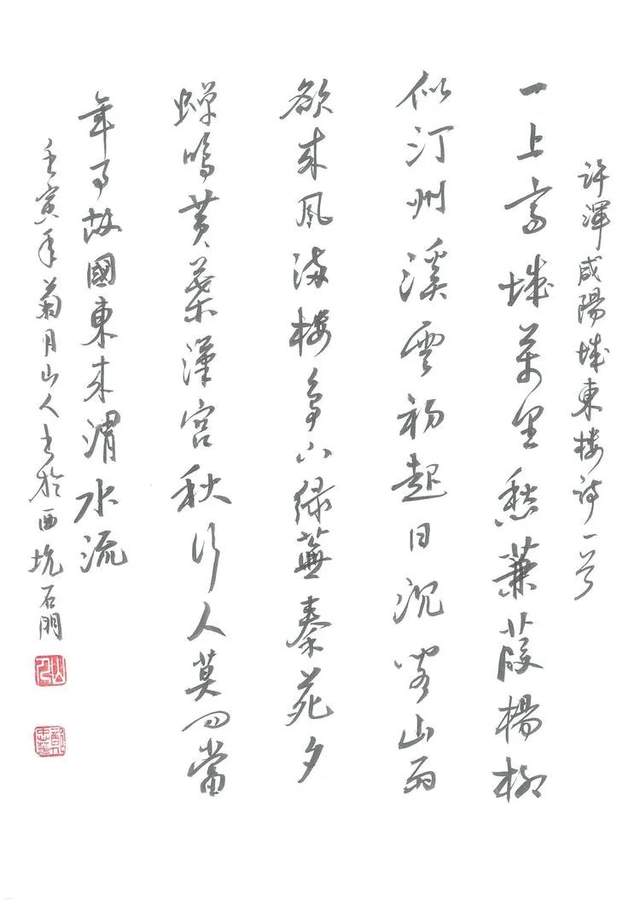 許渾咸陽城東楼詩一首
一上高城萬里愁蒹葭楊柳
似汀州溪雲初起日沉閣山雨
欲来風満楼鳥下緑蕪秦苑夕
蟬鳴黄葉漢宮秋行人莫问當
年事故國東来渭水流
壬寅年菊月山人书於西坑石門